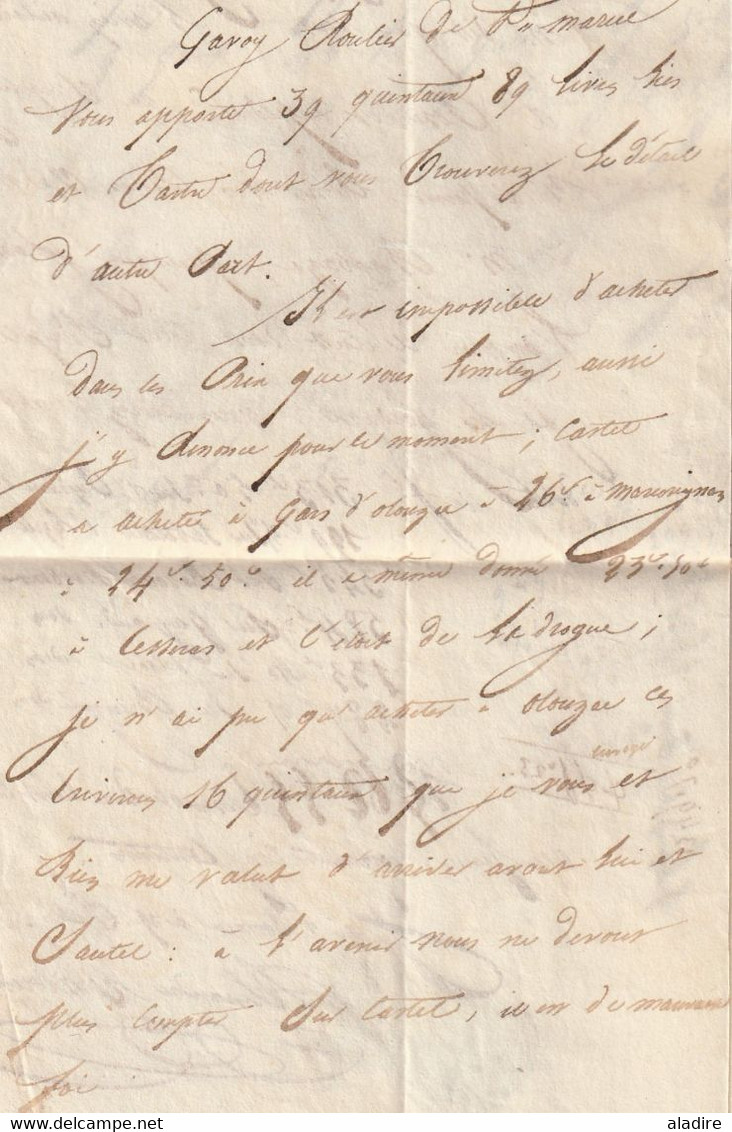 Gavoy Roulier de
Vous apporte 39 quintaux 89 livres
et Tartre dont vous trouverez le détail
d'autre Part.
Il est impossible d'acheter
dans les Prix que vous limitez, aussi
j'y Renonce pour le moment ; Castel
a acheté à d'olonzac à 26f. à
à 24f. 50c il a même donné 23f. 50c
à Cesseras et c'étoit de la drogue ;
je n'ai pu qu'acheter à olonzac ces
Environs 16 quintaux que je vous envoye et
bien me valut d'arriver avant lui et
Sautel : à l'avenir nous ne devons
plus Compter Sur Castel, il est de mauvaise
foi
aladire
www.delcampe.net